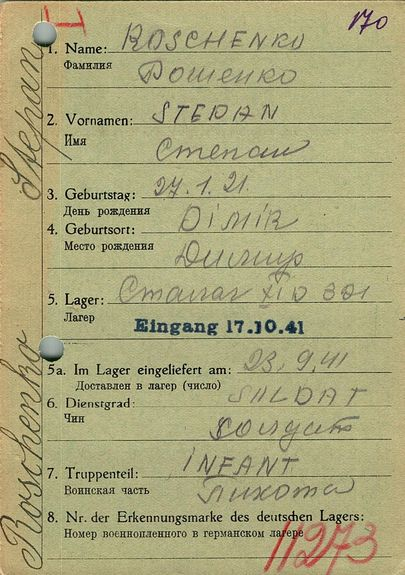 170
1. Name: ROSCHENKO
Фамилия
Рошенко
2. Vornamen: STEPAN
Имя
Степан
3. Geburtstag: 27.1.21.
День рождения
4. Geburtsort: DIMIR
Место рождения
Димир
5. Lager: Сталаг XI D 321
Лагер
Eingang 17.10.41
5a. Im Lager eingeliefert am: 23.9.41
Доставлен в лагер (число)
6. Dienstgrad: SOLDAT
Чин
Солдат
7. Truppenteil: INFANT
Воинская часть
Пихота
8. Nr. der Erkennungsmarke des deutschen Lagers:
Номер военнопленного в германском лагере
11273
Roschenko Stepan